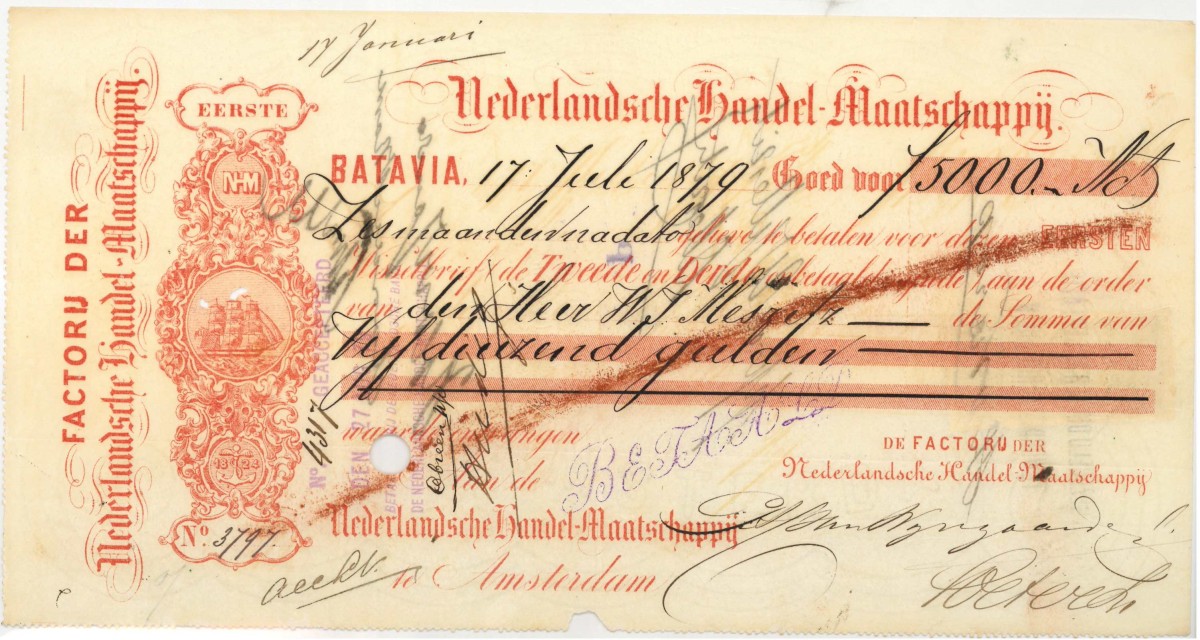 17 Januari
FACTORIJ DER
Nederlandsche Handel-Maatschappij.
EERSTE
NHM
1824
No. 3797.
Nederlandsche Handel-Maatschappij.
BATAVIA, 17 Juli 1879 Goed voor f 5000.-
Zes maanden na dato gelieve te betalen voor dezen EERSTEN
Wisselbrief de Tweede en Derde onbetaald zynde aan de order
van den Heer W J de Somma van
Vyf duizend gulden
waarde ontvangen
Aan de
Nederlandsche Handel-Maatschappij
te Amsterdam
No 4317 GEACCEPTEERD
DEN 27
BETAALBAAR BIJ DE NEDERLANDSCHE BANK
DE NEDERLANDSCHE HANDEL
BETAALD
DE FACTORIJ DER
Nederlandsche Handel-Maatschappij